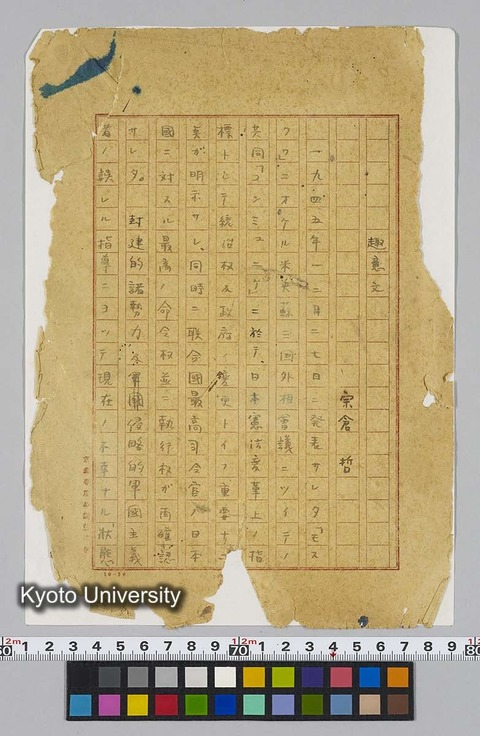 趣意文
宗倉 哲
一九四五年一二月二七日ニ発表サレタ「モス
クワ」ニオケル米英蘇三国外相會議ニツイテノ
共同「コンミュニケ」ニ於テ、日本憲法変革上ノ指
標トシテ統治权及政府ノ変更トイフ重要ナ
義ガ明示サレ、同時ニ聯合國最高司令官ノ日本
國ニ対スル最高ノ命令权並ニ執行权ガ再確認
サレタ。封建的諸勢力及軍閥侵略的軍国主義
者ノ誤レル指導ニヨツテ現在ノ不幸ナル状態
10-20
Kyoto University
60 1 2m 2 3 4 5 6 7 8 9 70 1 2m 2 3 4 5 6 7 8 9 80